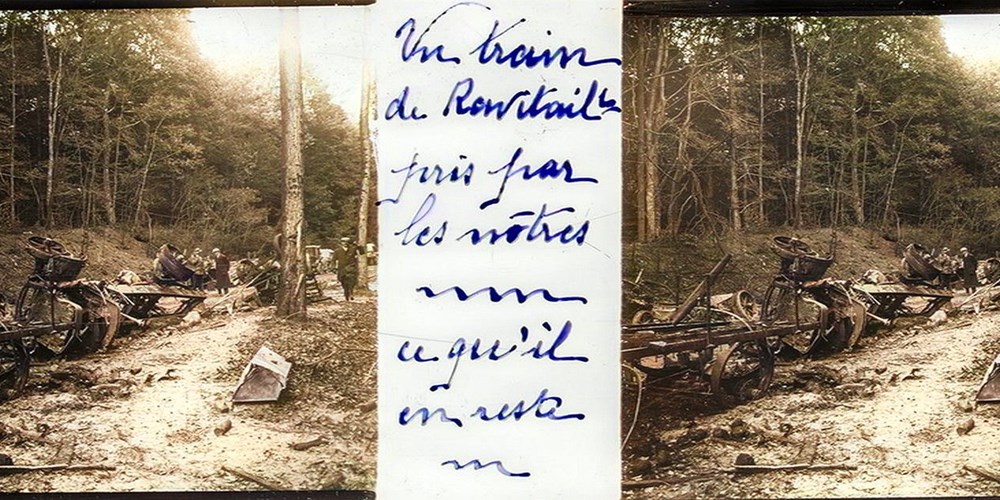 Un train
de Ravitail^t
pris par
les nôtres
ce qu'il
en reste